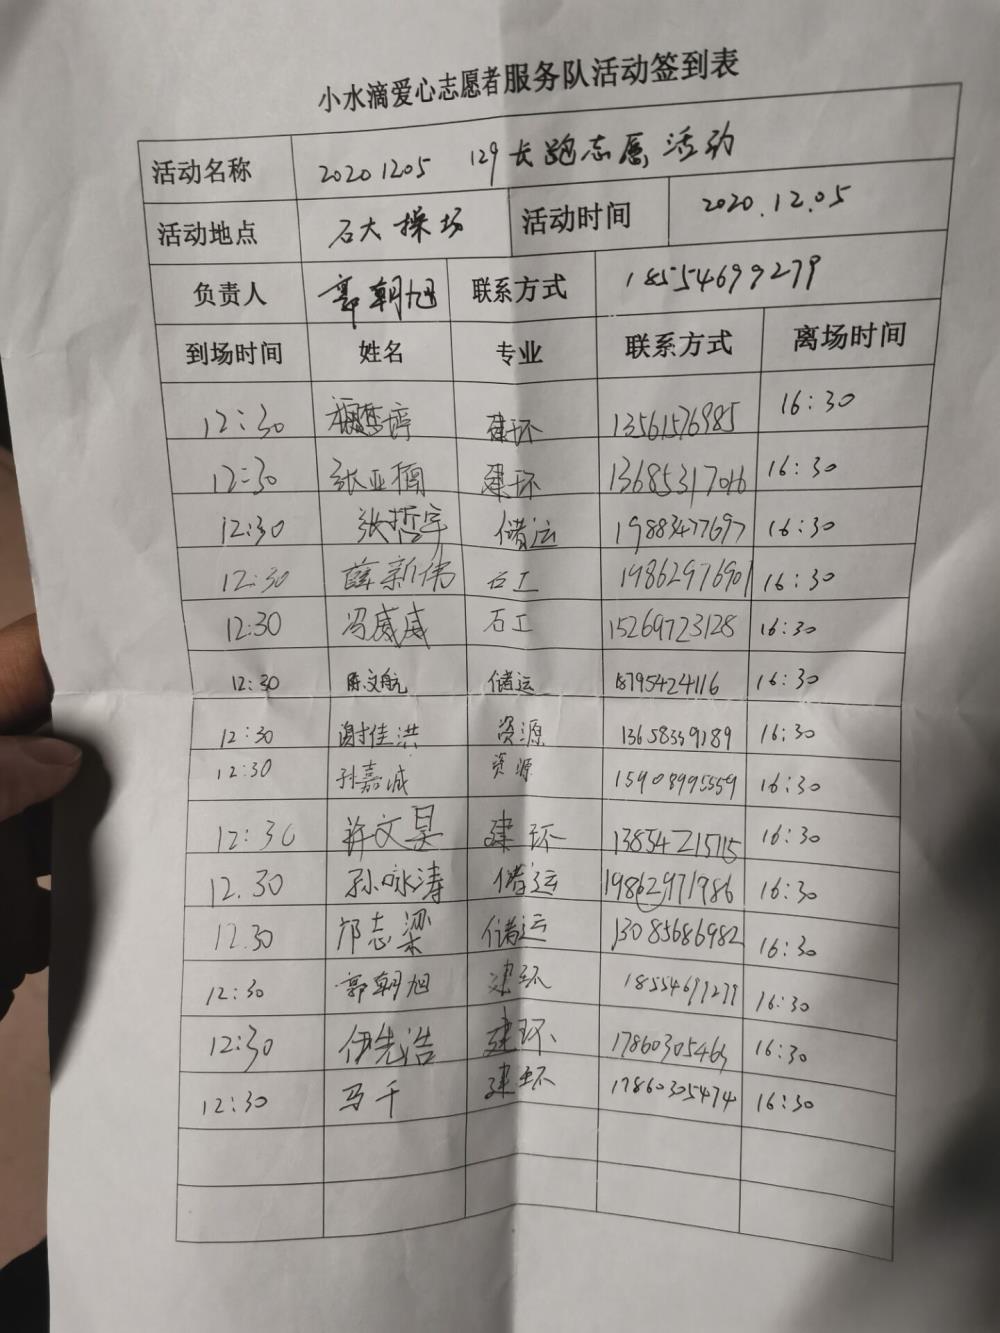 小水滴爱心志愿者服务队活动签到表
活动名称 20201205 129长跑志愿活动
活动地点 石大操场 活动时间 2020.12.05
负责人 郭朝旭 联系方式 18554699279
到场时间 姓名 专业 联系方式 离场时间
12:30 建环 13561576985 16:30
12:30 张亚楠 建环 13685317016 16:30
12:30 张哲宇 储运 19883477697 16:30
12:30 薛新伟 石工 19862976901 16:30
12:30 冯威威 石工 15269723128 16:30
12:30 陈文航 储运 18795424116 16:30
12:30 谢佳洪 资源 13658359189 16:30
12:30 孙嘉诚 资源 15908995559 16:30
12:30 许文昊 建环 13854215115 16:30
12.30 孙咏涛 储运 19862971986 16:30
12.30 邝志梁 储运 13085686982 16:30
12:30 郭朝旭 建环 18554699279 16:30
12:30 伊先浩 建环 17860305469 16:30
12:30 马千 建环 17860305474 16:30